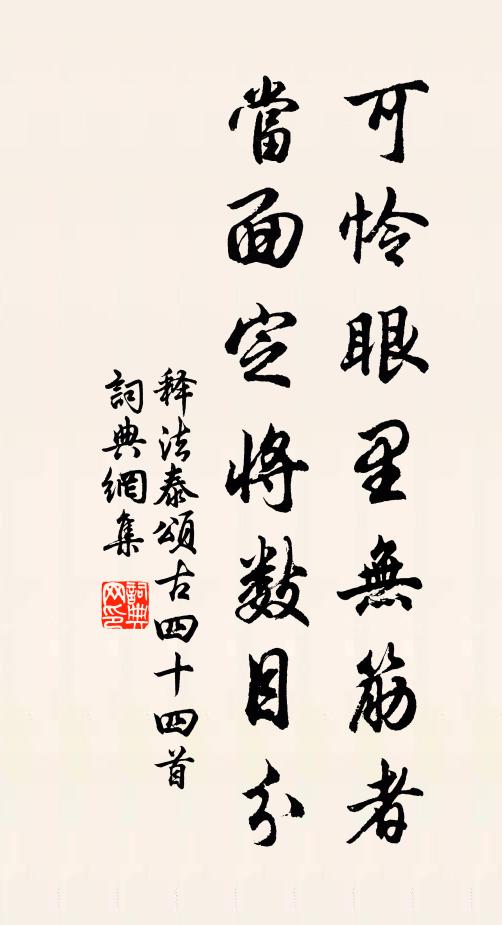 可怜眼里無筋者
當面定將数目分
释法泰頌古四十四首
詞典網集
詞典网印